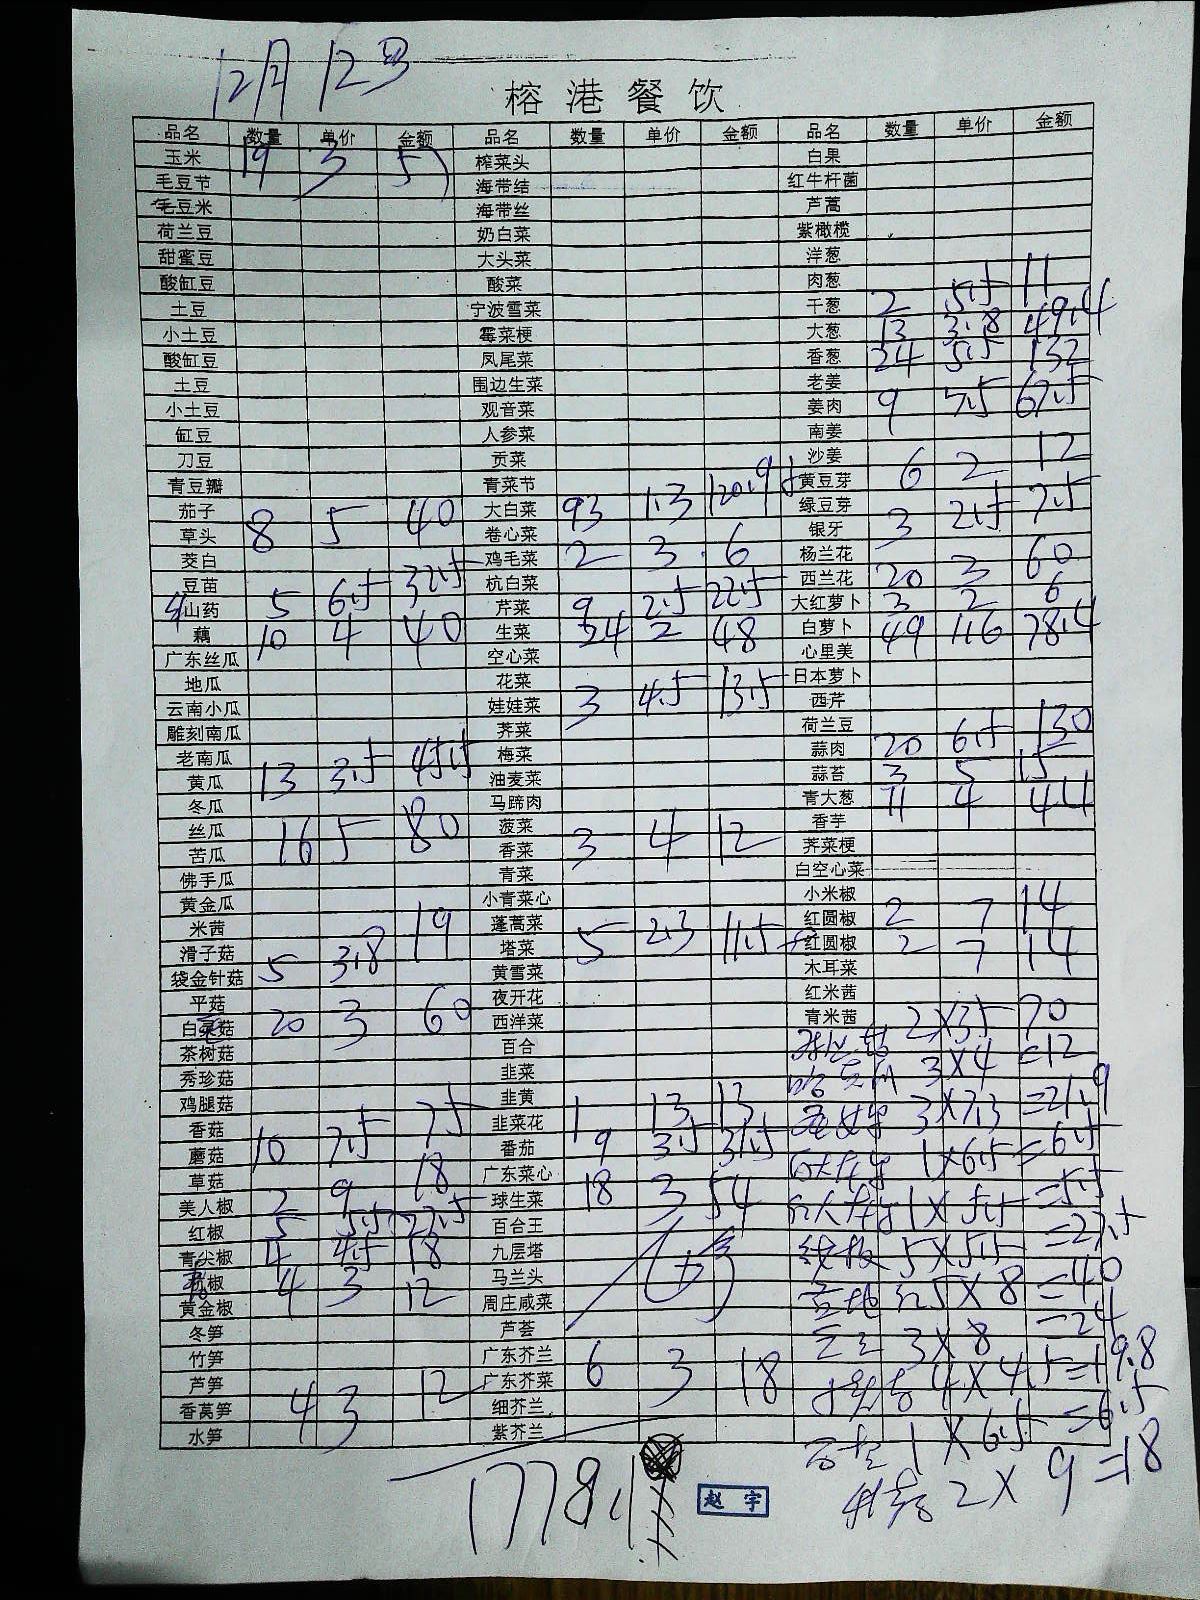 12月12号
榕港餐饮
品名 数量 单价 金额 品名 数量 单价 金额 品名 数量 单价 金额
玉米 19 3 57 榨菜头 白果
毛豆节 海带结 红牛杆菌
毛豆米 海带丝 芦蒿
荷兰豆 奶白菜 紫橄榄
甜蜜豆 大头菜 洋葱
酸缸豆 酸菜 肉葱
土豆 宁波雪菜 干葱 2 5.5 11
小土豆 霉菜梗 大葱 13 3.8 49.4
酸缸豆 凤尾菜 香葱 24 5.5 132
土豆 围边生菜 老姜
小土豆 观音菜 姜肉 9 7.5 67.5
缸豆 人参菜 南姜
刀豆 贡菜 沙姜
青豆瓣 青菜节 黄豆芽 6 2 12
茄子 8 5 40 大白菜 93 1.3 120.9 绿豆芽
草头 卷心菜 银牙 3 2.5 7.5
茭白 鸡毛菜 2 3 6 杨兰花
豆苗 杭白菜 西兰花 20 3 60
山药 5 6.5 32.5 芹菜 9 2.5 22.5 大红萝卜 3 2 6
藕 10 4 40 生菜 24 2 48 白萝卜 49 1.6 78.4
广东丝瓜 空心菜 心里美
地瓜 花菜 日本萝卜
云南小瓜 娃娃菜 3 4.5 13.5 西芹
雕刻南瓜 荠菜 荷兰豆
老南瓜 梅菜 蒜肉 20 6.5 130
黄瓜 13 3.5 45.5 油麦菜 蒜苔 3 5 15
冬瓜 马蹄肉 青大葱 11 4 44
丝瓜 16 5 80 菠菜 香芋
苦瓜 香菜 3 4 12 荠菜梗
佛手瓜 青菜 白空心菜
黄金瓜 小青菜心 小米椒
米茜 蓬蒿菜 红圆椒 2 7 14
滑子菇 塔菜 5 2.3 11.5 红圆椒 2 7 14
袋金针菇 5 3.8 19 黄雪菜 木耳菜
平菇 夜开花 红米茜
白灵菇 20 3 60 西洋菜 青米茜
茶树菇 百合 2×35 70
秀珍菇 韭菜 3×4 =12
鸡腿菇 韭黄 3×7.3 =21.9
香菇 韭菜花 1 13 13
蘑菇 10 7.5 75 番茄 9 3.5 31.5 1×6.5 =6.5
草菇 广东菜心 18 3 54
美人椒 2 9 18 球生菜 1×5.5 =5.5
红椒 5 5.5 27.5 百合王
青尖椒 4 4.5 18 九层塔 5×5.5 =27.5
杭椒 4 3 12 马兰头
黄金椒 周庄咸菜 5×8 =40
冬笋 芦荟 3×8 =24
竹笋 广东芥兰 6 3 18
芦笋 广东芥菜 4×4.5 =19.8
香莴笋 4 3 12 细芥兰
水笋 紫芥兰 1×6.5 =6.5
2×9=18
赵宇